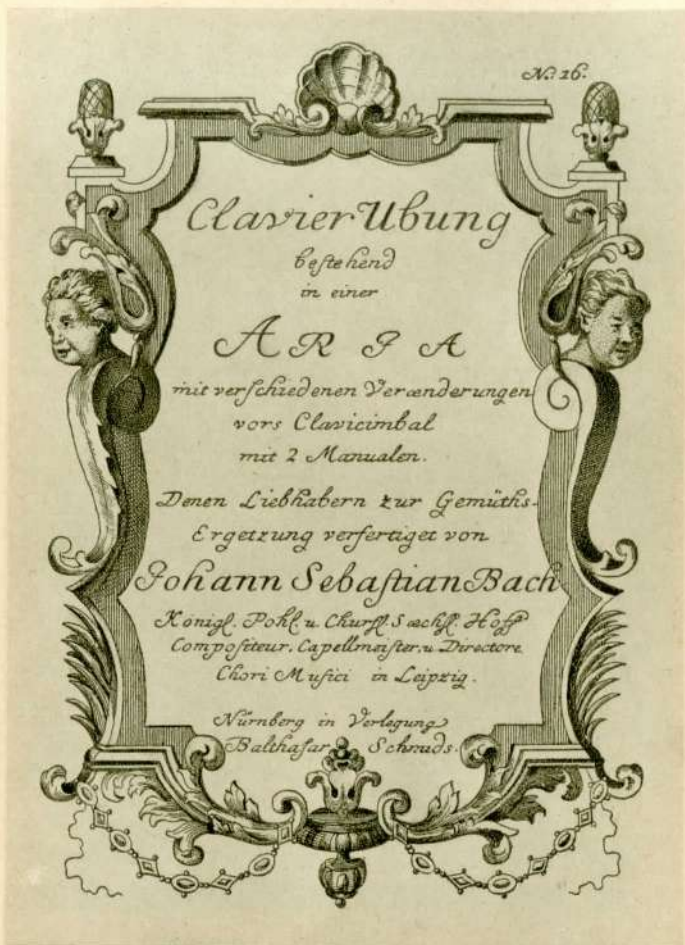 N.º 16.
Clavier Ubung
bestehend
in einer
ARIA
mit verschiedenen Verænderungen
vors Clavicimbal
mit 2 Manualen.
Denen Liebhabern zur Gemüths-
Ergetzung verfertiget von
Johann Sebastian Bach
Königl. Pohl. u. Churfl. Sæchsl. Hoff-
Compositeur, Capellmeister, u. Directore
Chori Musici in Leipzig.
Nürnberg in Verlegung
Balthasar Schmids.